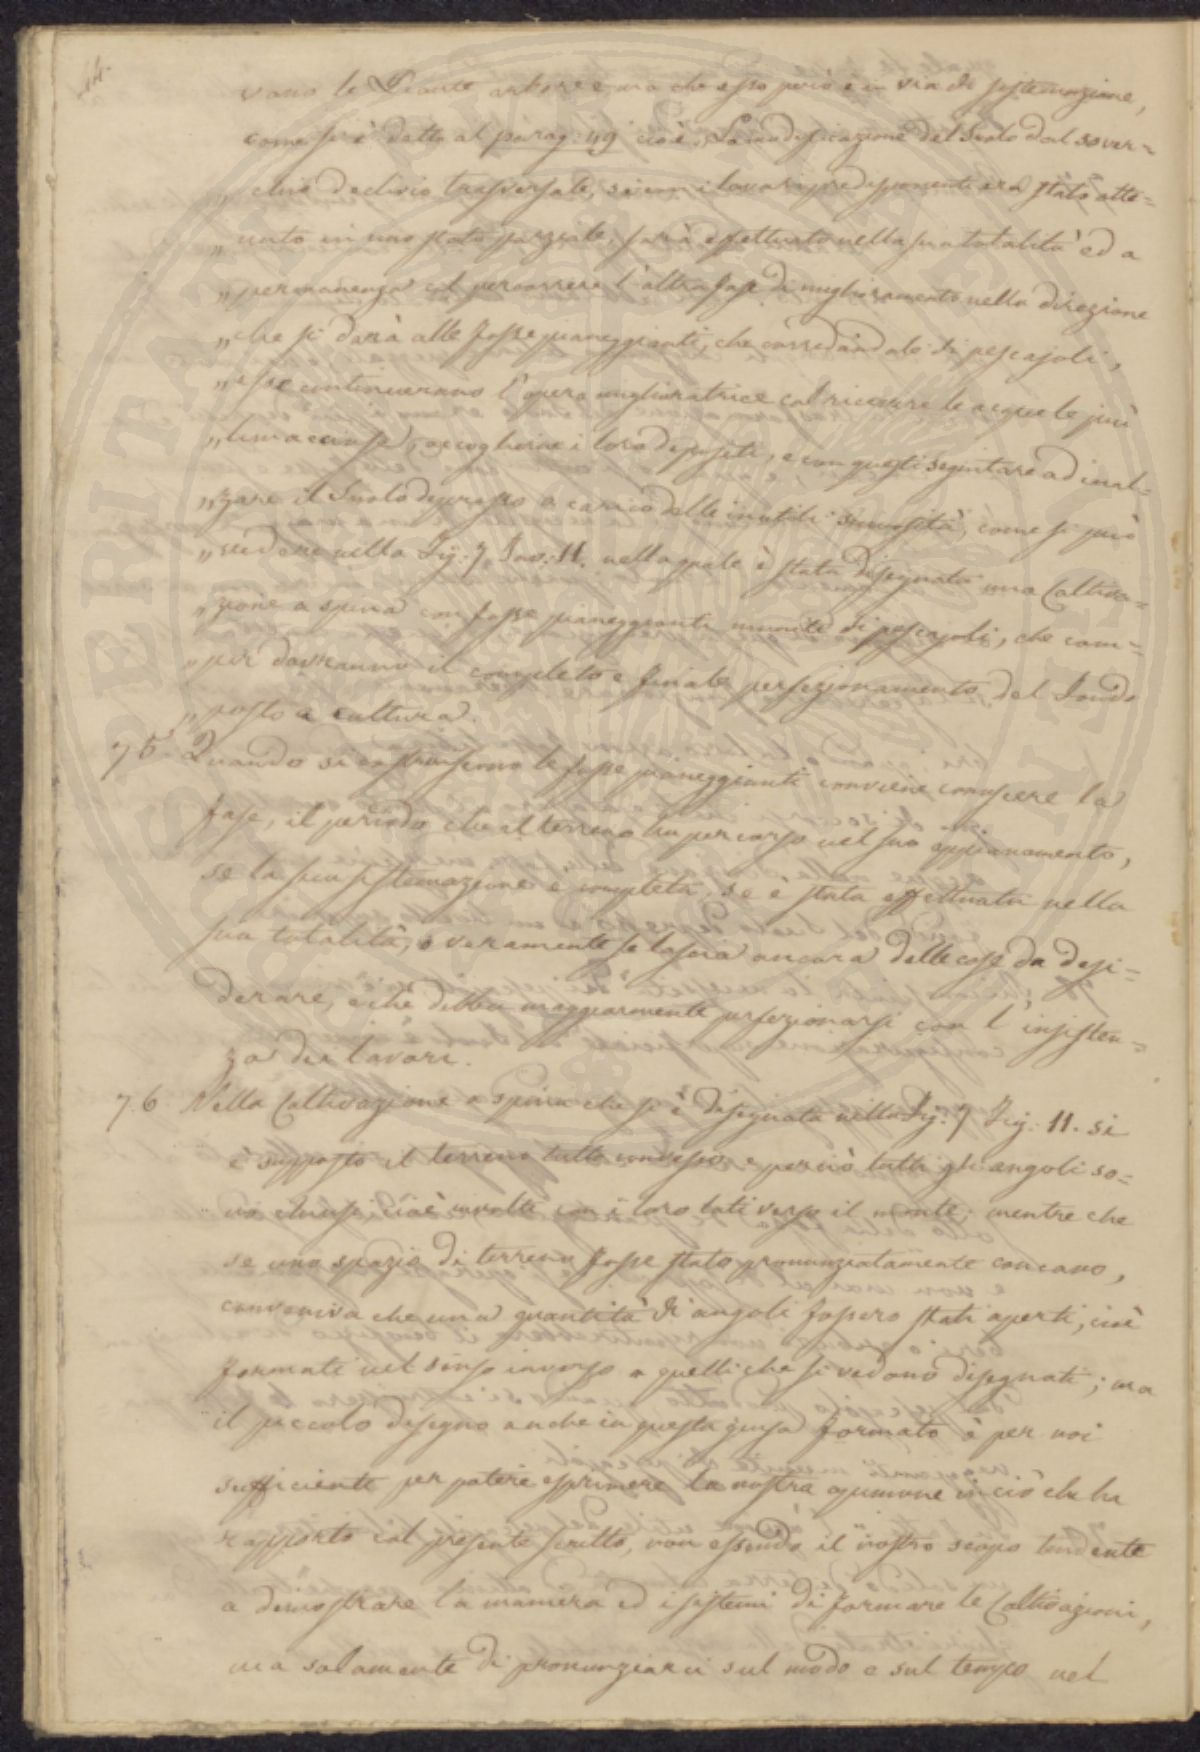 44.
vano le Piante arboree ma che esso però è in via di sistemazione,
come si è detto al parag: 49 cioè „La modificazione del Suolo dal sover=
„chio declivio trasversale, se con i lavori predisponenti era stato otte=
„nuto in uno stato parziale, sarà effettuato nella sua totalità ed a
„permanenza col percorrere l'altra fase di miglioramento nella direzione
„che si darà alle fosse pianeggianti, che corredandole di pescajoli,
„esse continueranno l'opera miglioratrice col ricevere le acque le più
„limacciose, raccoglierne i loro depositi, e con questi seguitare ad inal=
„zare il Suolo depresso a carico delle inutili sinuosità, come si può
„vedere nella Fig: 7. Tav: 11. nella quale è stata disegnata una Coltiva=
„zione a spina con fosse pianeggianti munite di pescajoli, che com=
„pir dovranno il completo e finale perfezionamento del Fondo
„posto a cultura.
75. Quando si costruiscono le fosse pianeggianti conviene conoscere la
fase, il periodo che il terreno ha percorso nel suo appianamento,
se la sua sistemazione è completa, se è stata effettuata nella
sua totalità, o veramente se lascia ancora delle cose da desi=
derare, e che debba maggiormente perfezionarsi con l'insisten=
za dei lavori.
76. Nella Coltivazione a spina che si è disegnata nella Fig: 7 Fig: 11. si
è supposto il terreno tutto convesso e perciò tutti gli angoli so=
no chiusi cioè rivolti con i loro lati verso il monte; mentre che
se uno spazio di terreno fosse stato pronunziatamente concavo,
conveniva che una quantità di angoli fossero stati aperti, cioè
formati nel senso inverso a quelli che si vedono disegnati; ma
il piccolo disegno anche in questa guisa formato è per noi
sufficiente per potere esprimere la nostra opinione in ciò che ha
rapporto col presente scritto, non essendo il nostro scopo tendente
a dimostrare la maniera ed i sistemi di formare le Coltivazioni,
ma solamente di pronunziarci sul modo e sul tempo nel